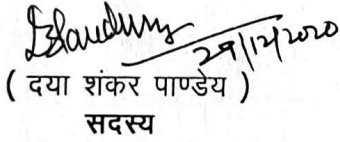 29/12/2020
( दया शंकर पाण्डेय )
सदस्य